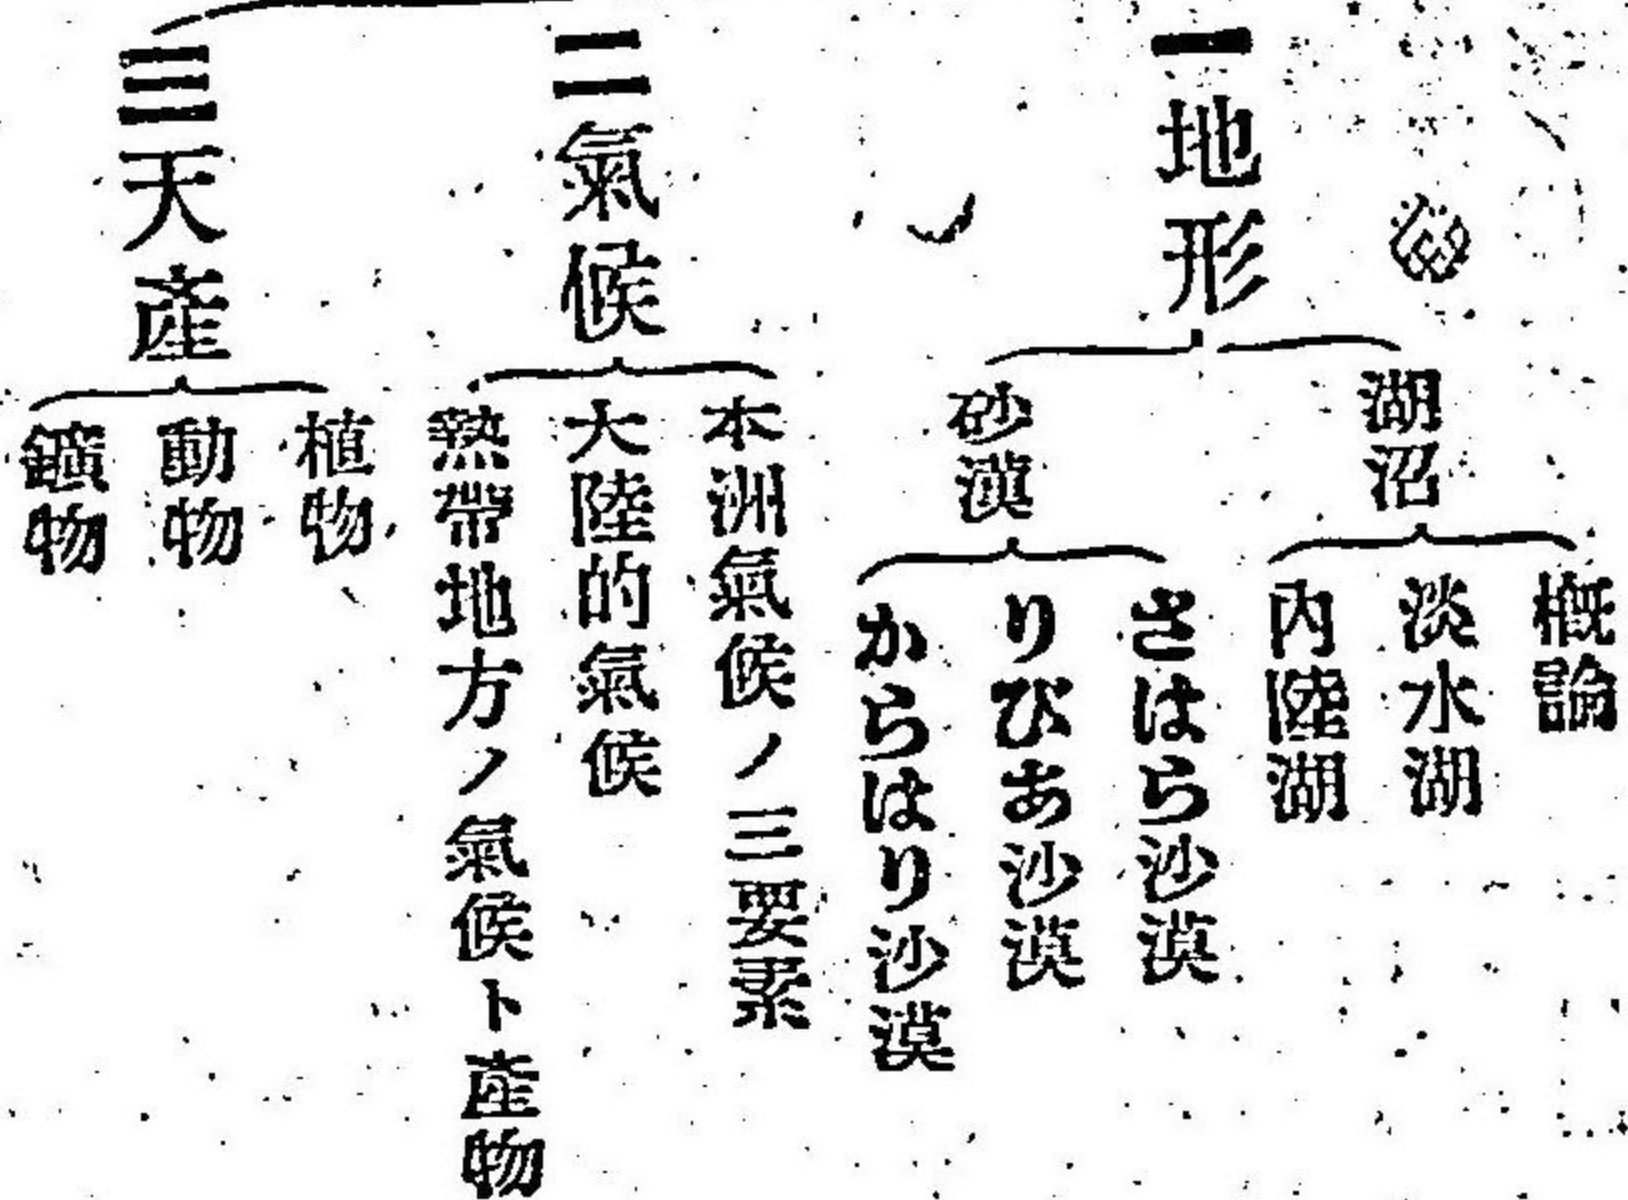 一地形
湖沼
概論
淡水湖
内陸湖
砂漠
さはら沙漠
りびあ沙漠
からはり沙漠
二氣候
本洲氣候ノ三要素
大陸的氣候
熱帶地方ノ氣候ト産物
三天産
植物
動物
鑛物